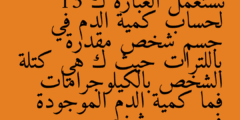 تستعمل العبارة ك 13
لحساب كمية الدم في
جسم شخص مقدره
باللترات حيث ك هي كتلة
الشخص بالكيلوجرامات
فما كمية الدم الموجودة